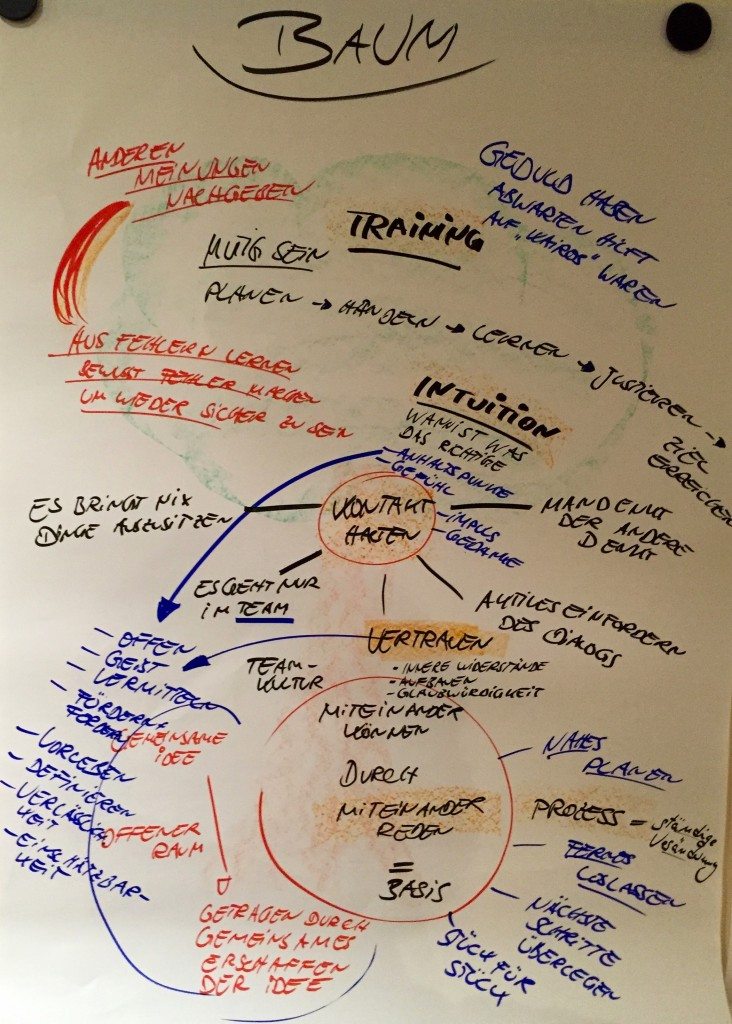 BAUM
ANDEREN
MEINUNGEN
NACHGEBEN
GEDULD HABEN
ABWARTEN HILFT
AUF „KAIROS" WAREN
TRAINING
MUTIG SEIN
PLANEN → HANDELN → LERNEN → JUSTIEREN →
ZIEL
ERREICHEN
AUS FEHLERN LERNEN
BEWUST FEHLER MACHEN
UM WIEDER SICHER ZU SEIN
INTUITION
WANN IST WAS
DAS RICHTIGE
- ANHALTSPUNKTE
- GEFÜHL
- IMPULS
- GEDANKE
KONTAKT
HALTEN
ES BRINGT NIX
DINGE AUSZUSITZEN
MAN DENKT
DER ANDERE
DENKT
ES GEHT NUR
IM TEAM
AKTIVES EINFORDERN
DES DIALOGS
VERTRAUEN
• INNERE WIDERSTÄNDE
• AUFBAUEN
- GLAUBWÜRDIGKEIT
TEAM-
KULTUR
- OFFEN
- GEIST
- VERMITTELN
- FÖRDERN +
FORDERN
- VORLEBEN
- DEFINIEREN
- VERLÄSSLICH
KEIT
- EINSCHÄTZBAR-
KEIT
GEMEINSAME
IDEE
OFFENER
RAUM
GETRAGEN DURCH
GEMEINSAMES
ERSCHAFFEN
DER IDEE
MITEINANDER
KÖNNEN
DURCH
MITEINANDER
REDEN
=
BASIS
NAHES
PLANEN
PROZESS = ständige
Veränderung
FERNES
LOSLASSEN
NÄCHSTE
SCHRITTE
ÜBERLEGEN
STÜCK FÜR
STÜCK